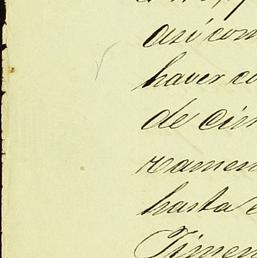 así com
haver co
de cin
ramen
hasta e
Jimen